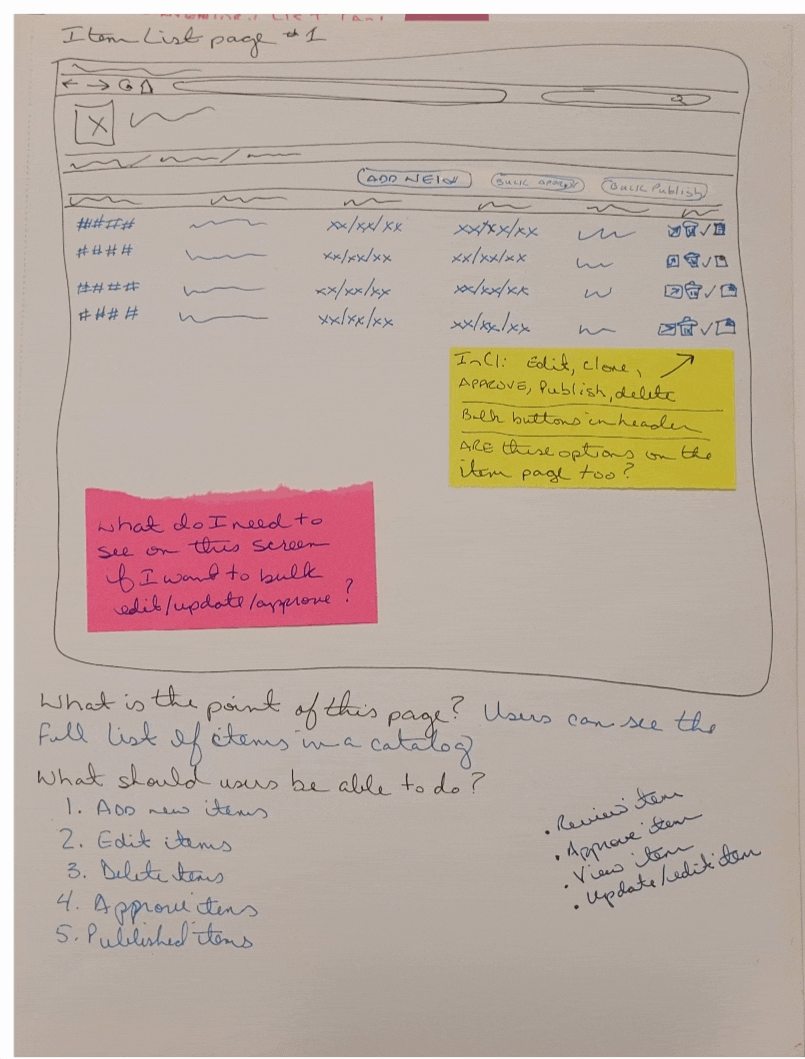 Item List page #1
ADD NEW
BULK APPROVE
BULK Publish
#### xx/xx/xx xx/xx/xx
#### xx/xx/xx xx/xx/xx
#### xx/xx/xx xx/xx/xx
#### xx/xx/xx xx/xx/xx
Incl: Edit, clone,
APPROVE, Publish, delete
Bulk buttons in header
ARE these options on the
item page too?
What do I need to
see on this screen
if I want to bulk
edit/update/approve?
What is the point of this page? Users can see the
full list of items in a catalog
What should users be able to do?
1. ADD new items
2. Edit items
3. Delete items
4. Approve items
5. Published items
• Review item
• Approve item
• View item
• Update/edit item